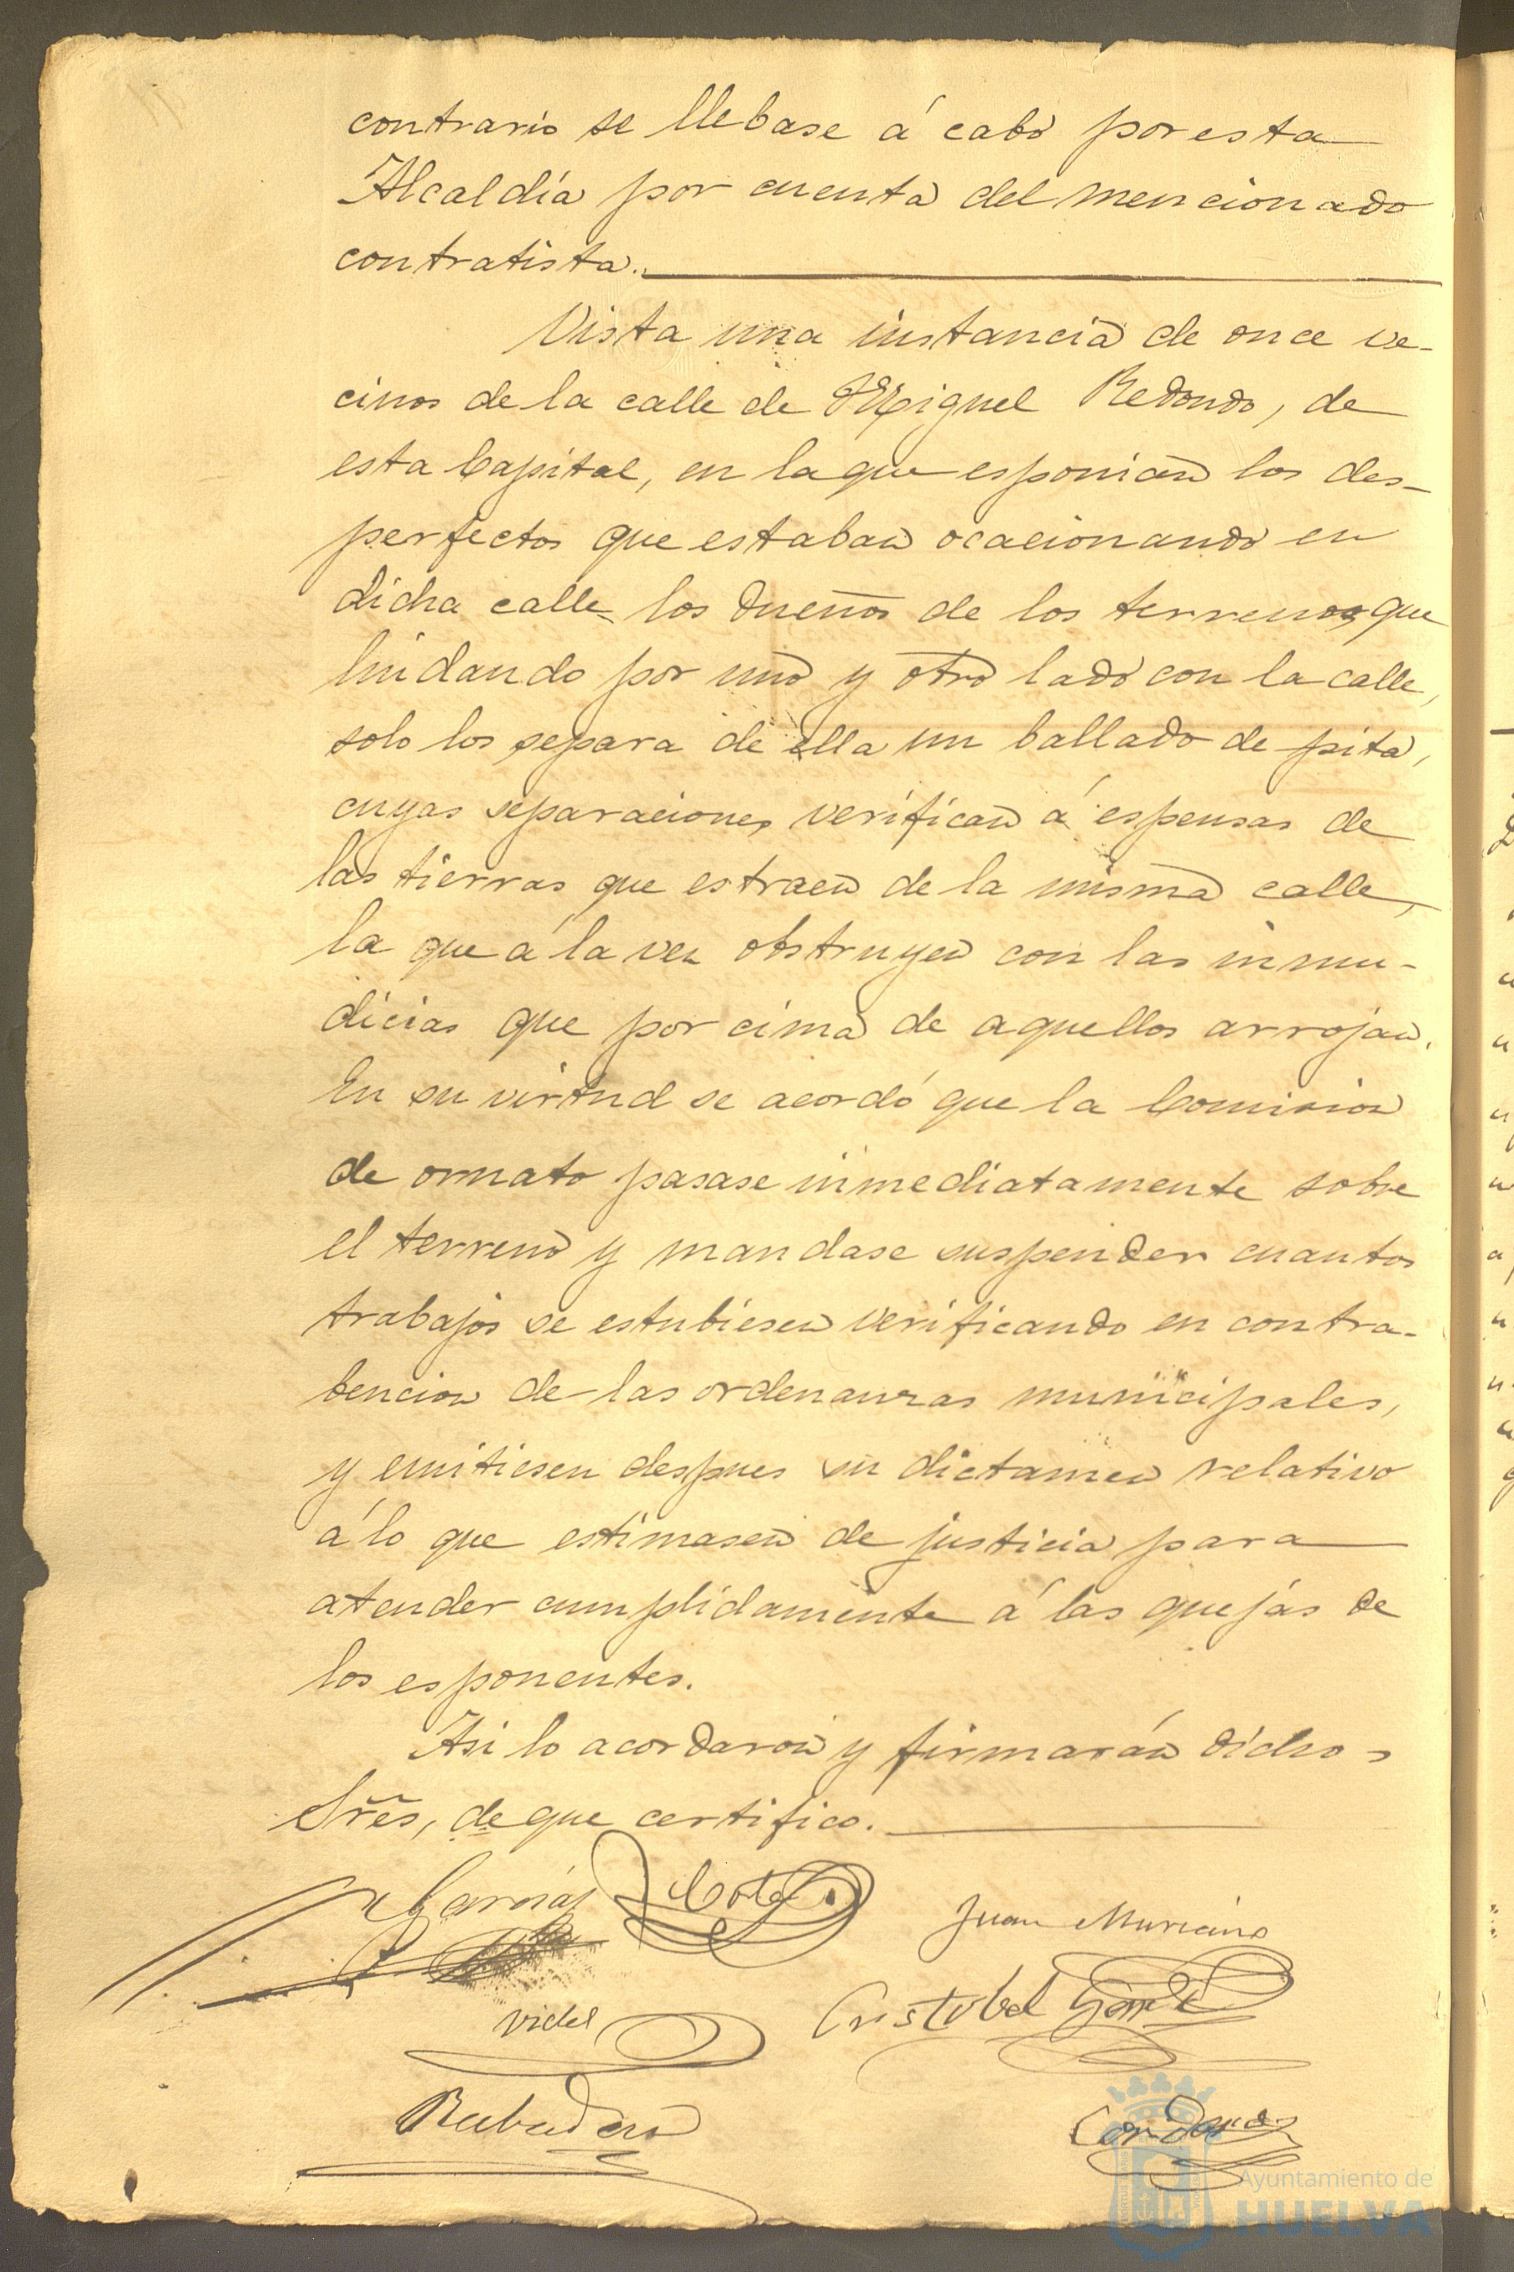 contrario se llebase á cabo por esta
Alcaldía por cuenta del mencionado
contratista.
Vista una instancia de once ve-
cinos de la calle de Miguel Redondo, de
esta Capital, en la que esponian los des-
perfectos que estaban ocacionando en
dicha calle los dueños de los terrenos que
lindando por uno y otro lado con la calle,
solo los separa de ella un ballado de pita,
cuyas separaciones verifican á espensas de
las tierras que estraen de la misma calle,
la que á la vez obstruyen con las inmu-
dicias que por cima de aquellos arrojan.
En su virtud se acordó que la Comision
de ornato pasase inmediatamente sobre
el terreno y mandase suspender cuantos
trabajos se estubiesen verificando en contra-
bencion de las ordenanzas municipales,
y emitiesen despues su dictamen relativo
á lo que estimasen de justicia para
atender cumplidamente á las quejas de
los esponentes.
Asi lo acordaron y firmarán dichos
Sres, de que certifico.
Garcia
Juan Murciano
Vidal
Cristobal
Rabadan
Ayuntamiento de
HUELVA